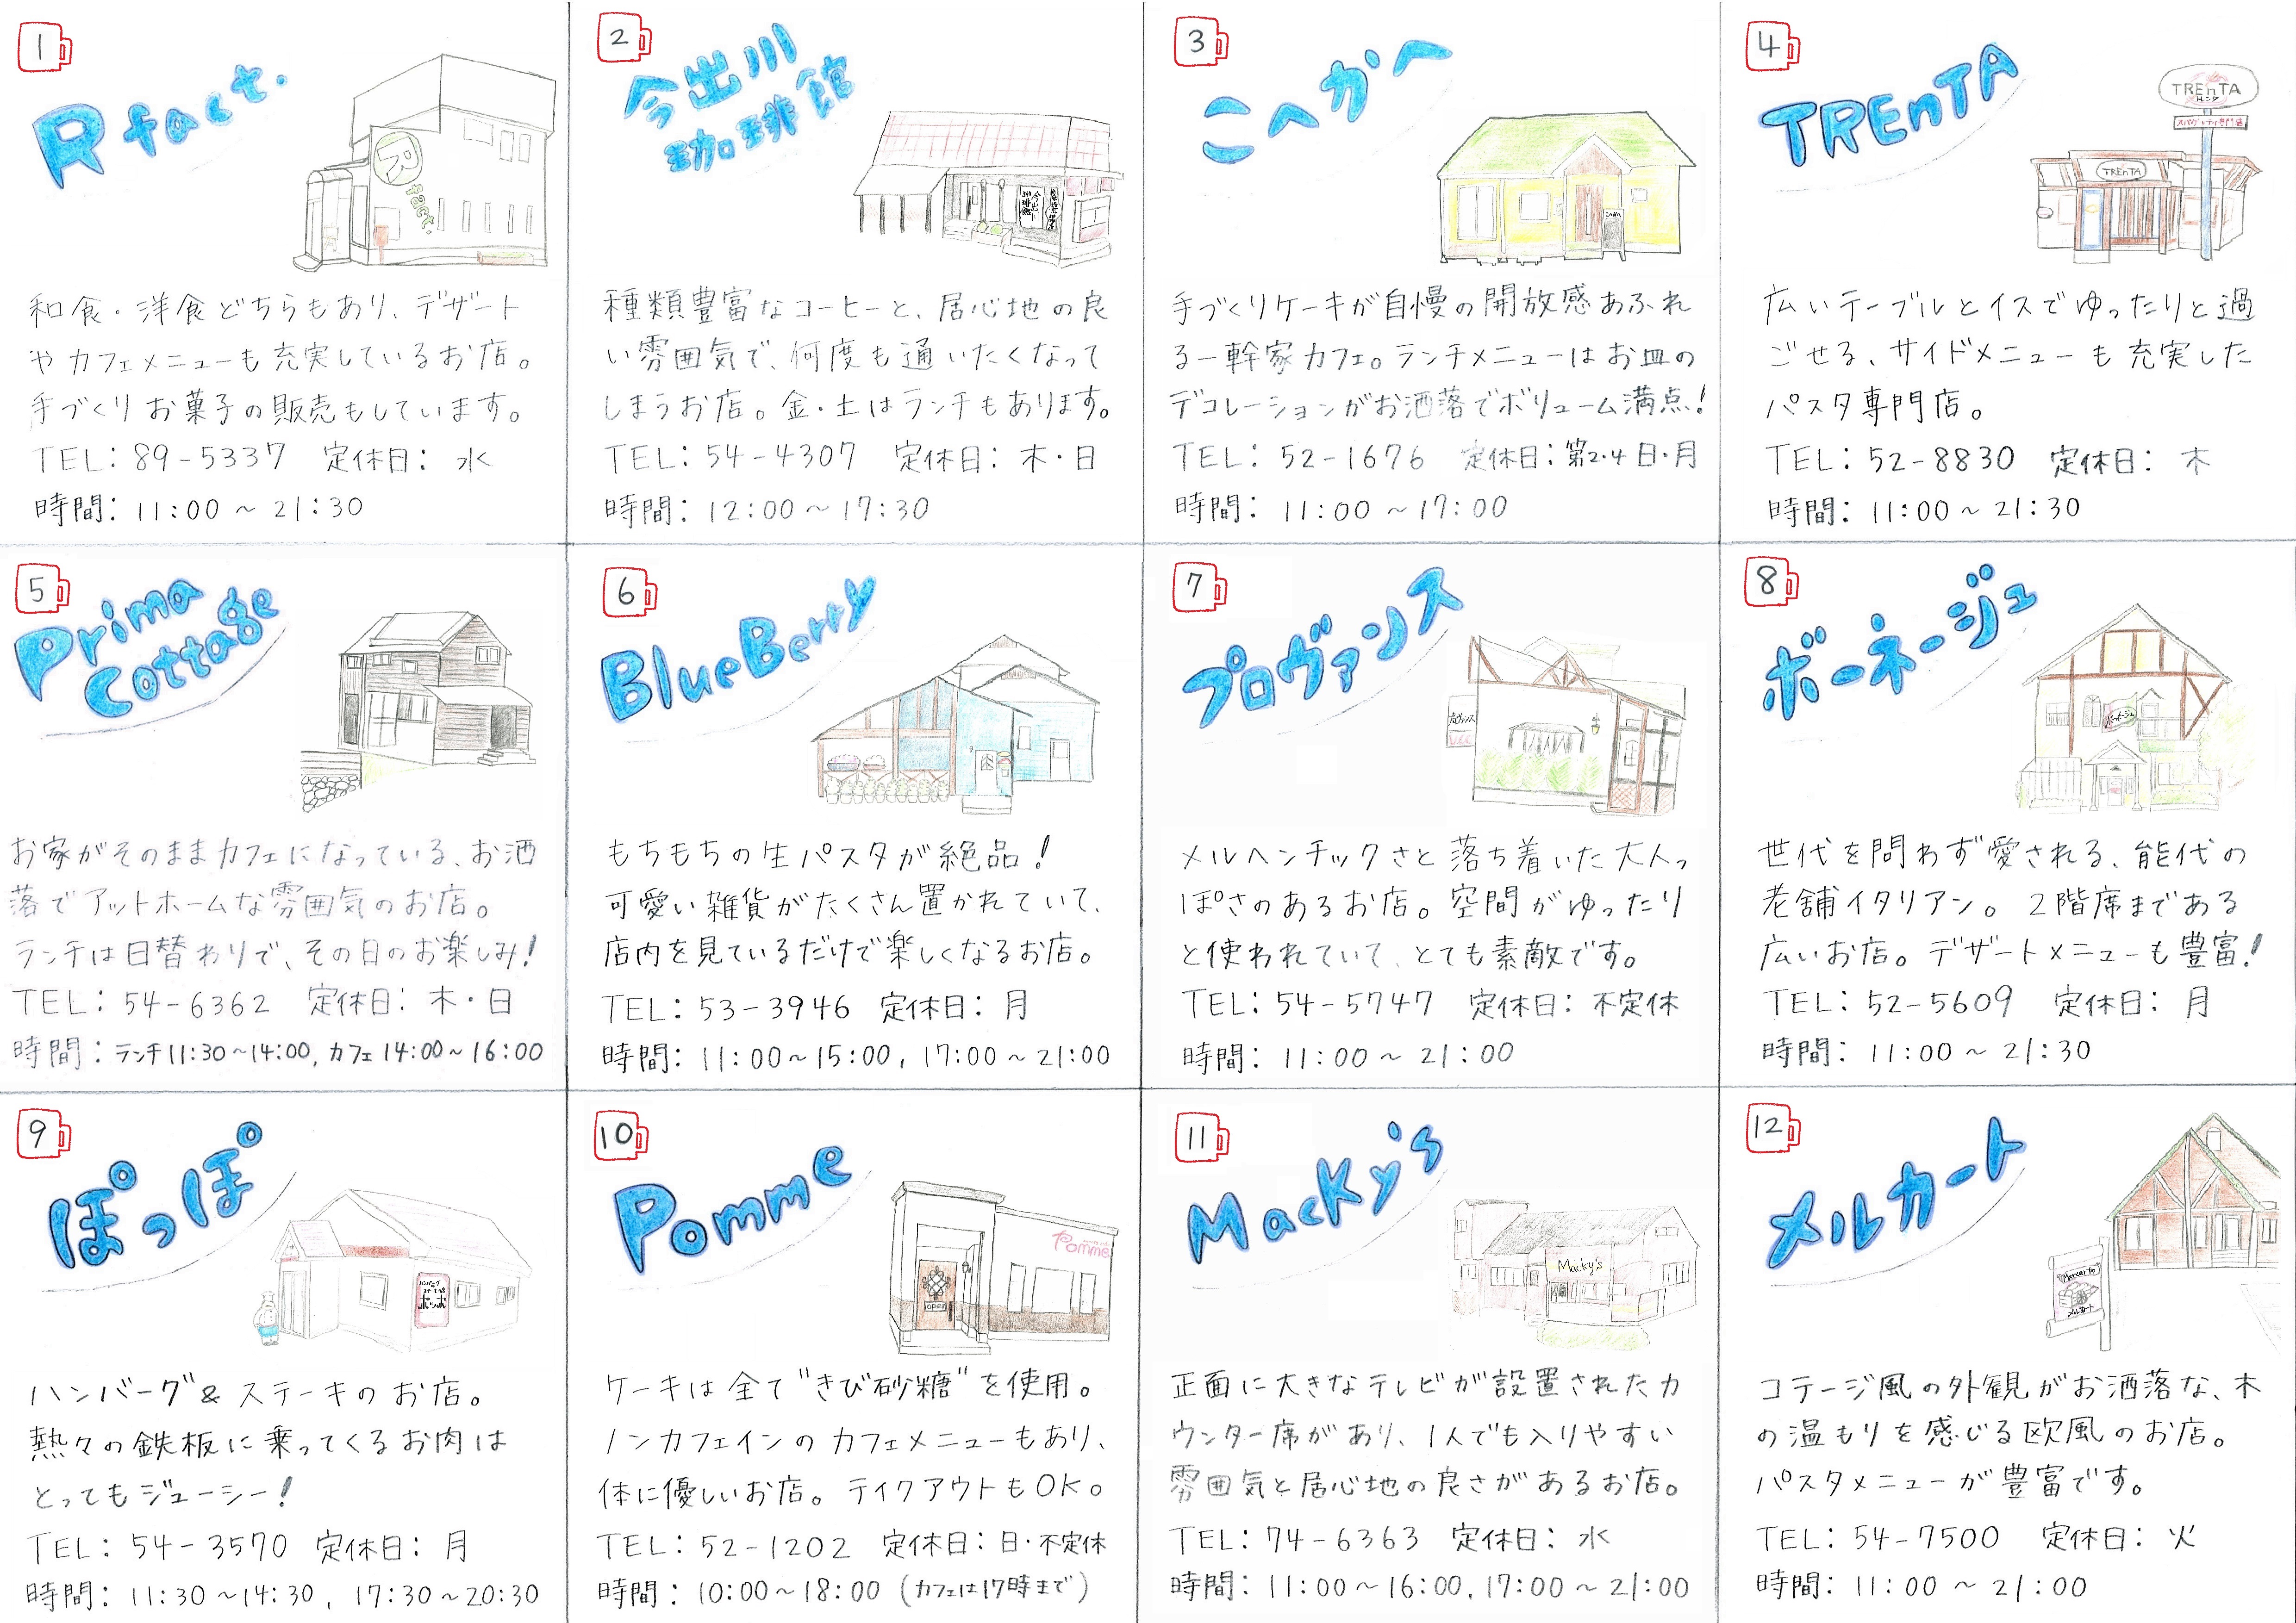 1
R fact.
R fact.
和食・洋食どちらもあり、デザート
やカフェメニューも充実しているお店。
手づくりお菓子の販売もしています。
TEL：89-5337　定休日：水
時間：11:00～21:30
2
今出川
珈琲館
種類豊富なコーヒーと、居心地の良
い雰囲気で、何度も通いたくなって
しまうお店。金・土はランチもあります。
TEL：54-4307　定休日：木・日
時間：12:00～17:30
3
こへかへ
手づくりケーキが自慢の開放感あふれ
る一幹家カフェ。ランチメニューはお皿の
デコレーションがお洒落でボリューム満点！
TEL：52-1676　定休日：第2・4 日・月
時間：11:00～17:00
4
TREnTA
TREnTA
トレンタ
スパゲッティ専門店
TREnTA
広いテーブルとイスでゆったりと過
ごせる、サイドメニューも充実した
パスタ専門店。
TEL：52-8830　定休日：木
時間：11:00～21:30
5
Prima
Cottage
お家がそのままカフェになっている、お洒
落でアットホームな雰囲気のお店。
ランチは日替わりで、その日のお楽しみ！
TEL：54-6362　定休日：木・日
時間：ランチ11:30～14:00, カフェ14:00～16:00
6
BlueBerry
もちもちの生パスタが絶品！
可愛い雑貨がたくさん置かれていて、
店内を見ているだけで楽しくなるお店。
TEL：53-3946　定休日：月
時間：11:00～15:00, 17:00～21:00
7
プロヴァンス
プロヴァンス
メルヘンチックさと落ち着いた大人っ
ぽさのあるお店。空間がゆったり
と使われていて、とても素敵です。
TEL：54-5747　定休日：不定休
時間：11:00～21:00
8
ボーネージュ
ボーネージュ
世代を問わず愛される、能代の
老舗イタリアン。2階席まである
広いお店。デザートメニューも豊富！
TEL：52-5609　定休日：月
時間：11:00～21:30
9
ぽっぽ
ハンバーグ
ポッポ
ハンバーグ&ステーキのお店。
熱々の鉄板に乗ってくるお肉は
とってもジューシー！
TEL：54-3570　定休日：月
時間：11:30～14:30, 17:30～20:30
10
Pomme
Pomme
open
ケーキは全て"きび砂糖"を使用。
ノンカフェインのカフェメニューもあり、
体に優しいお店。テイクアウトもOK。
TEL：52-1202　定休日：日・不定休
時間：10:00～18:00（カフェは17時まで）
11
Macky's
Macky's
正面に大きなテレビが設置されたカ
ウンター席があり、1人でも入りやすい
雰囲気と居心地の良さがあるお店。
TEL：74-6363　定休日：水
時間：11:00～16:00, 17:00～21:00
12
メルカート
Mercarto
メルカート
コテージ風の外観がお洒落な、木
の温もりを感じる欧風のお店。
パスタメニューが豊富です。
TEL：54-7500　定休日：火
時間：11:00～21:00